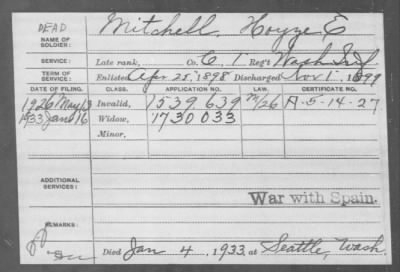 DEAD
NAME OF SOLDIER: Mitchell, Hoyze E
SERVICE: Late rank, Co. C, 1 Reg't Wash Inf
TERM OF SERVICE: Enlisted Apr 28, 1898 Discharged Nov 1, 1899
DATE OF FILING. CLASS. APPLICATION NO. LAW. CERTIFICATE NO.
1926 May 13 Invalid, 1539.639 M/26 A-5-14-27
1933 Jan 16 Widow, 1730033
Minor,
ADDITIONAL SERVICES:
War with Spain.
REMARKS:
Died Jan 4, 1933, at Seattle, Wash.